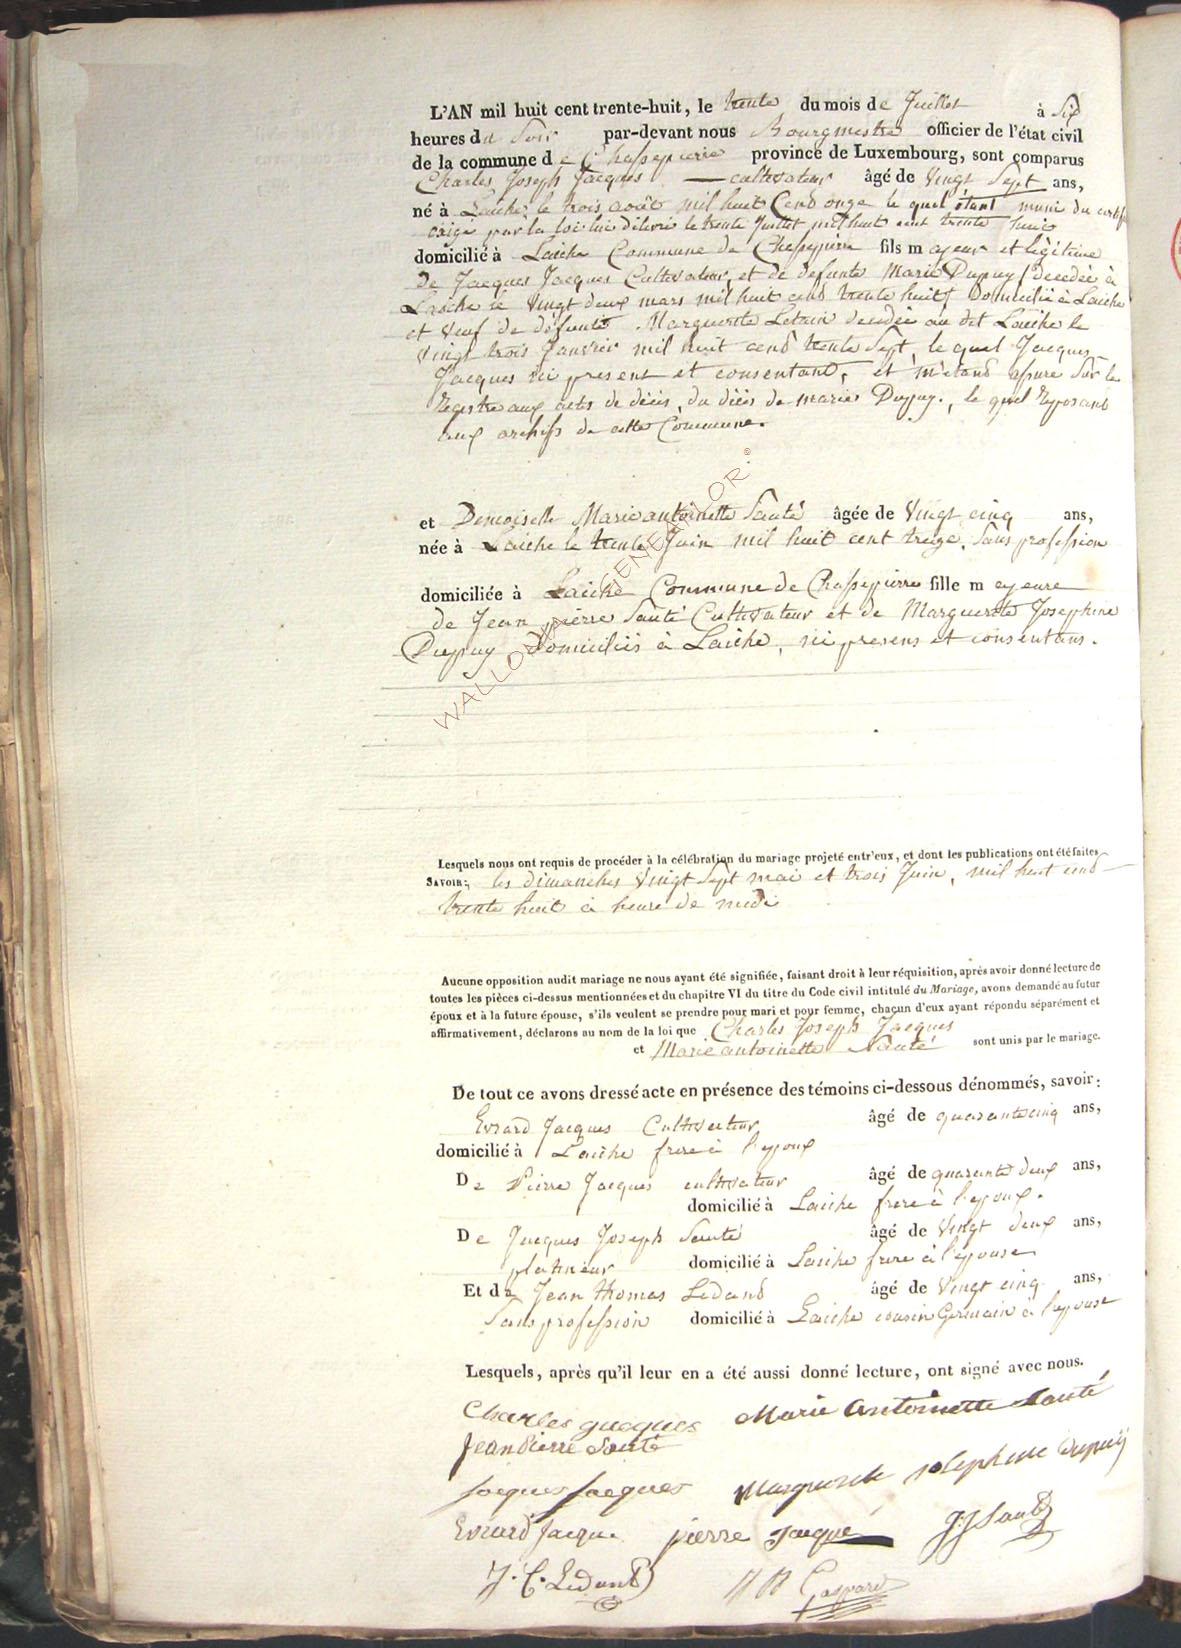 L'AN mil huit cent trente-huit, le trente du mois de Juillet à Six
heures du Soir par-devant nous Bourgmestre officier de l'état civil
de la commune de Chassepierre province de Luxembourg, sont comparus
Charles Joseph Jacques cultivateur âgé de Vingt Sept ans,
né à Laiche, le trois août mil huit Cend onze le quel étant muni du certifi
exigé par la loi lui délivré le trente Juillet mil huit cent trente huit
domicilié à Laiche Commune de Chassepierre fils majeur et légitime
De Jacques Jacques Cultivateur, et de defunte Marie Dupuy (decedée à
Laiche le Vingt deux mars mil huit cend trente huit) Domicilié à Laiche
et Veuf de défunte Marguerite Letain decedée au dit Laiche le
Vingt trois Janvier mil huit cend trente Sept, le quel Jacques
Jacques ici present et consentant, et m'étand assuré Sur le
Registre aux acts de décis, du décis de marie Dupuy, le quel Reposant
aux archifs de cette Commune.
et Demoiselle Marie antoinette Santé âgée de Vingt cinq ans,
née à Laiche le trente Juin mil huit cent treize, Sans profession
domiciliée à Laiche Commune de Chassepierre fille majeure
de Jean pierre Santé Cultivateur et de Marguerite Josephine
Dupuy Domiciliés à Laiche, ici presens et consentans.
WALLONIE GENEALOR ©
Lesquels nous ont requis de procéder à la célébration du mariage projeté entr'eux, et dont les publications ont été faites
SAVOIR: les dimanches Vingt Sept mai et trois Juin, mil huit cend
trente huit à heure de midi
Aucune opposition audit mariage ne nous ayant été signifiée, faisant droit à leur réquisition, après avoir donné lecture de
toutes les pièces ci-dessus mentionnées et du chapitre VI du titre du Code civil intitulé du Mariage, avons demandé au futur
époux et à la future épouse, s'ils veulent se prendre pour mari et pour femme, chacun d'eux ayant répondu séparément et
affirmativement, déclarons au nom de la loi que Charles Joseph Jacques
et Marie antoinette Santé sont unis par le mariage.
De tout ce avons dressé acte en présence des témoins ci-dessous dénommés, savoir:
Evrard Jacques Cultivateur âgé de quarante cinq ans,
domicilié à Laiche frere à l'epoux
De Pierre Jacques cultivateur âgé de quarante deux ans,
domicilié à Laiche frere à l'epoux.
De Jacques Joseph Santé âgé de Vingt deux ans,
platineur domicilié à Laiche frere à l'epouse
Et de Jean thomas Ledand âgé de Vingt cinq ans,
Sans profession domicilié à Laiche cousin Germain à l'epouse
Lesquels, après qu'il leur en a été aussi donné lecture, ont signé avec nous.
Charles jacques Marie Antoinette Santé
Jean Pierre Santé
Jacques Jacques Marguerite Josephine Dupuÿ
Evrard Jacque pierre Jacque J J Santé
J. T. Ledant Gaspard